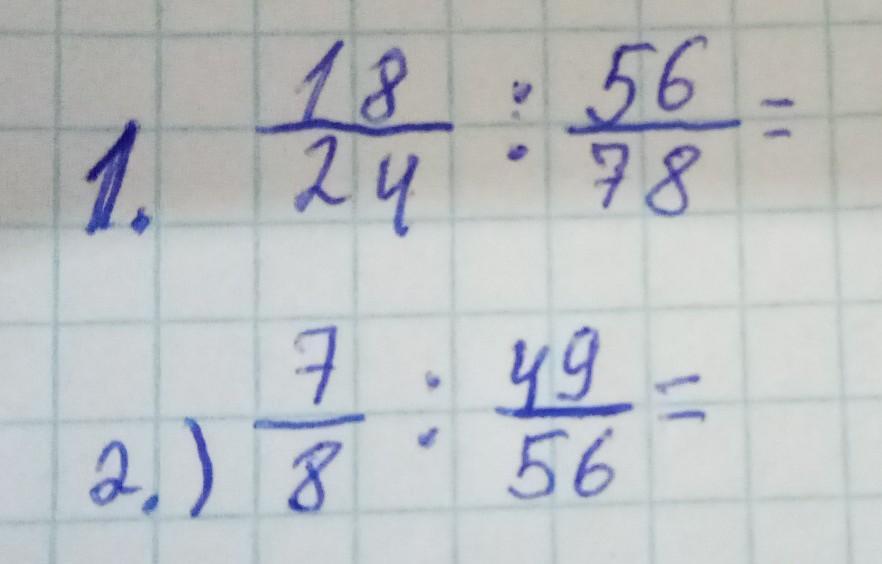 1. 18/24 : 56/78 =
2.) 7/8 : 49/56 =